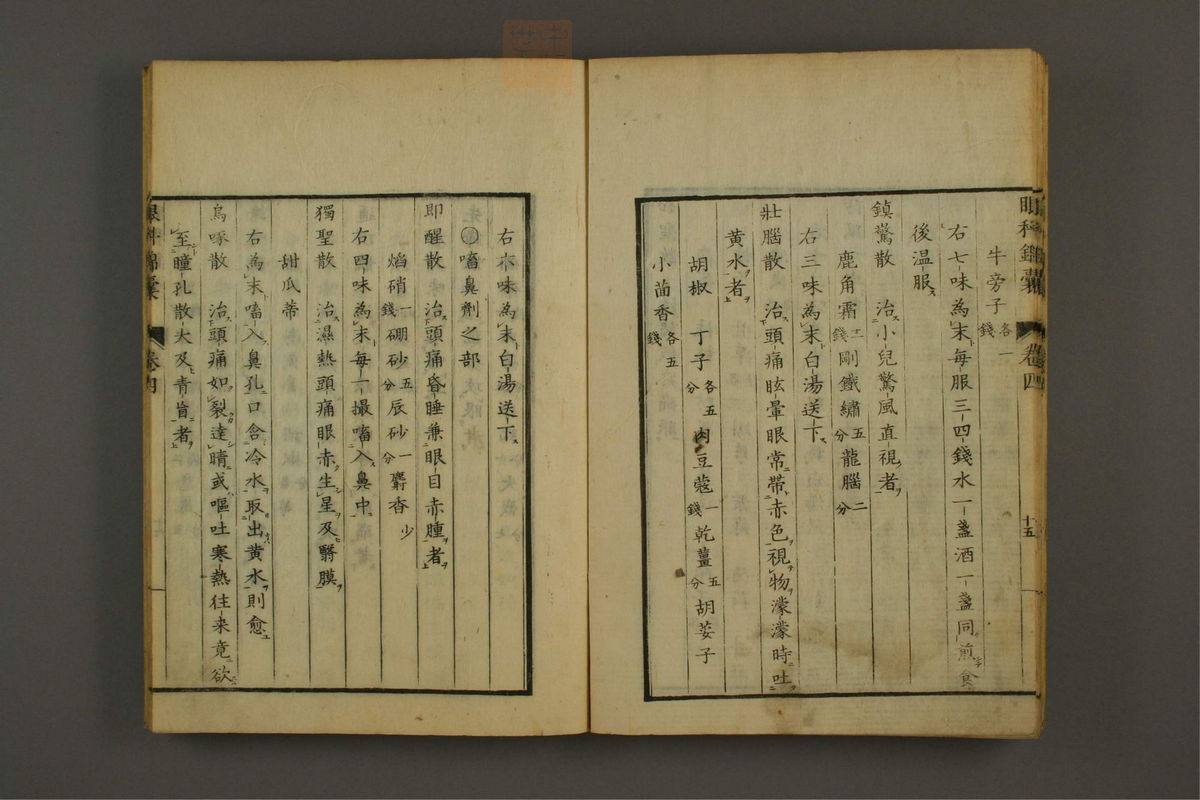 眼科錦囊 卷四 十五
牛旁子各一錢
右七味為末每服三四錢水一盞酒一盞同煎食
後温服
鎮驚散 治小兒驚風直視者
鹿角霜二錢剛鐵繡五分龍腦二分
右三味為末白湯送下
壯腦散 治頭痛眩暈眼常帶赤色視物濛濛時吐
黄水者
胡椒 丁子各五分肉豆蔻一錢乾薑五分胡荽子
小茴香各五錢
右六味為末白湯送下
○嗜鼻劑之部
即醒散 治頭痛昏睡兼眼目赤腫者
焰硝一錢硼砂五分辰砂一分麝香少
右四味為末每一撮嗜入鼻中
獨聖散 治濕熱頭痛眼赤生星及翳膜
甜瓜蒂
右為末嗜入鼻孔口含冷水取出黄水則愈
烏啄散 治頭痛如裂達睛或嘔吐寒熱往来竟欲
至瞳孔散大及青盲者
眼科錦囊 卷四